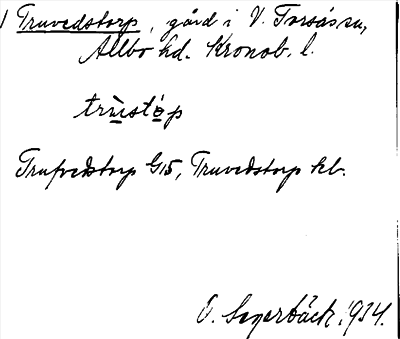 Truvedstorp, gård i V. Torsås sn,
Allbo hd. Kronob. l.
trùstóp
Trufvedstorp G15, Truvedstorp kb.
O. Segerbäck. 1934.